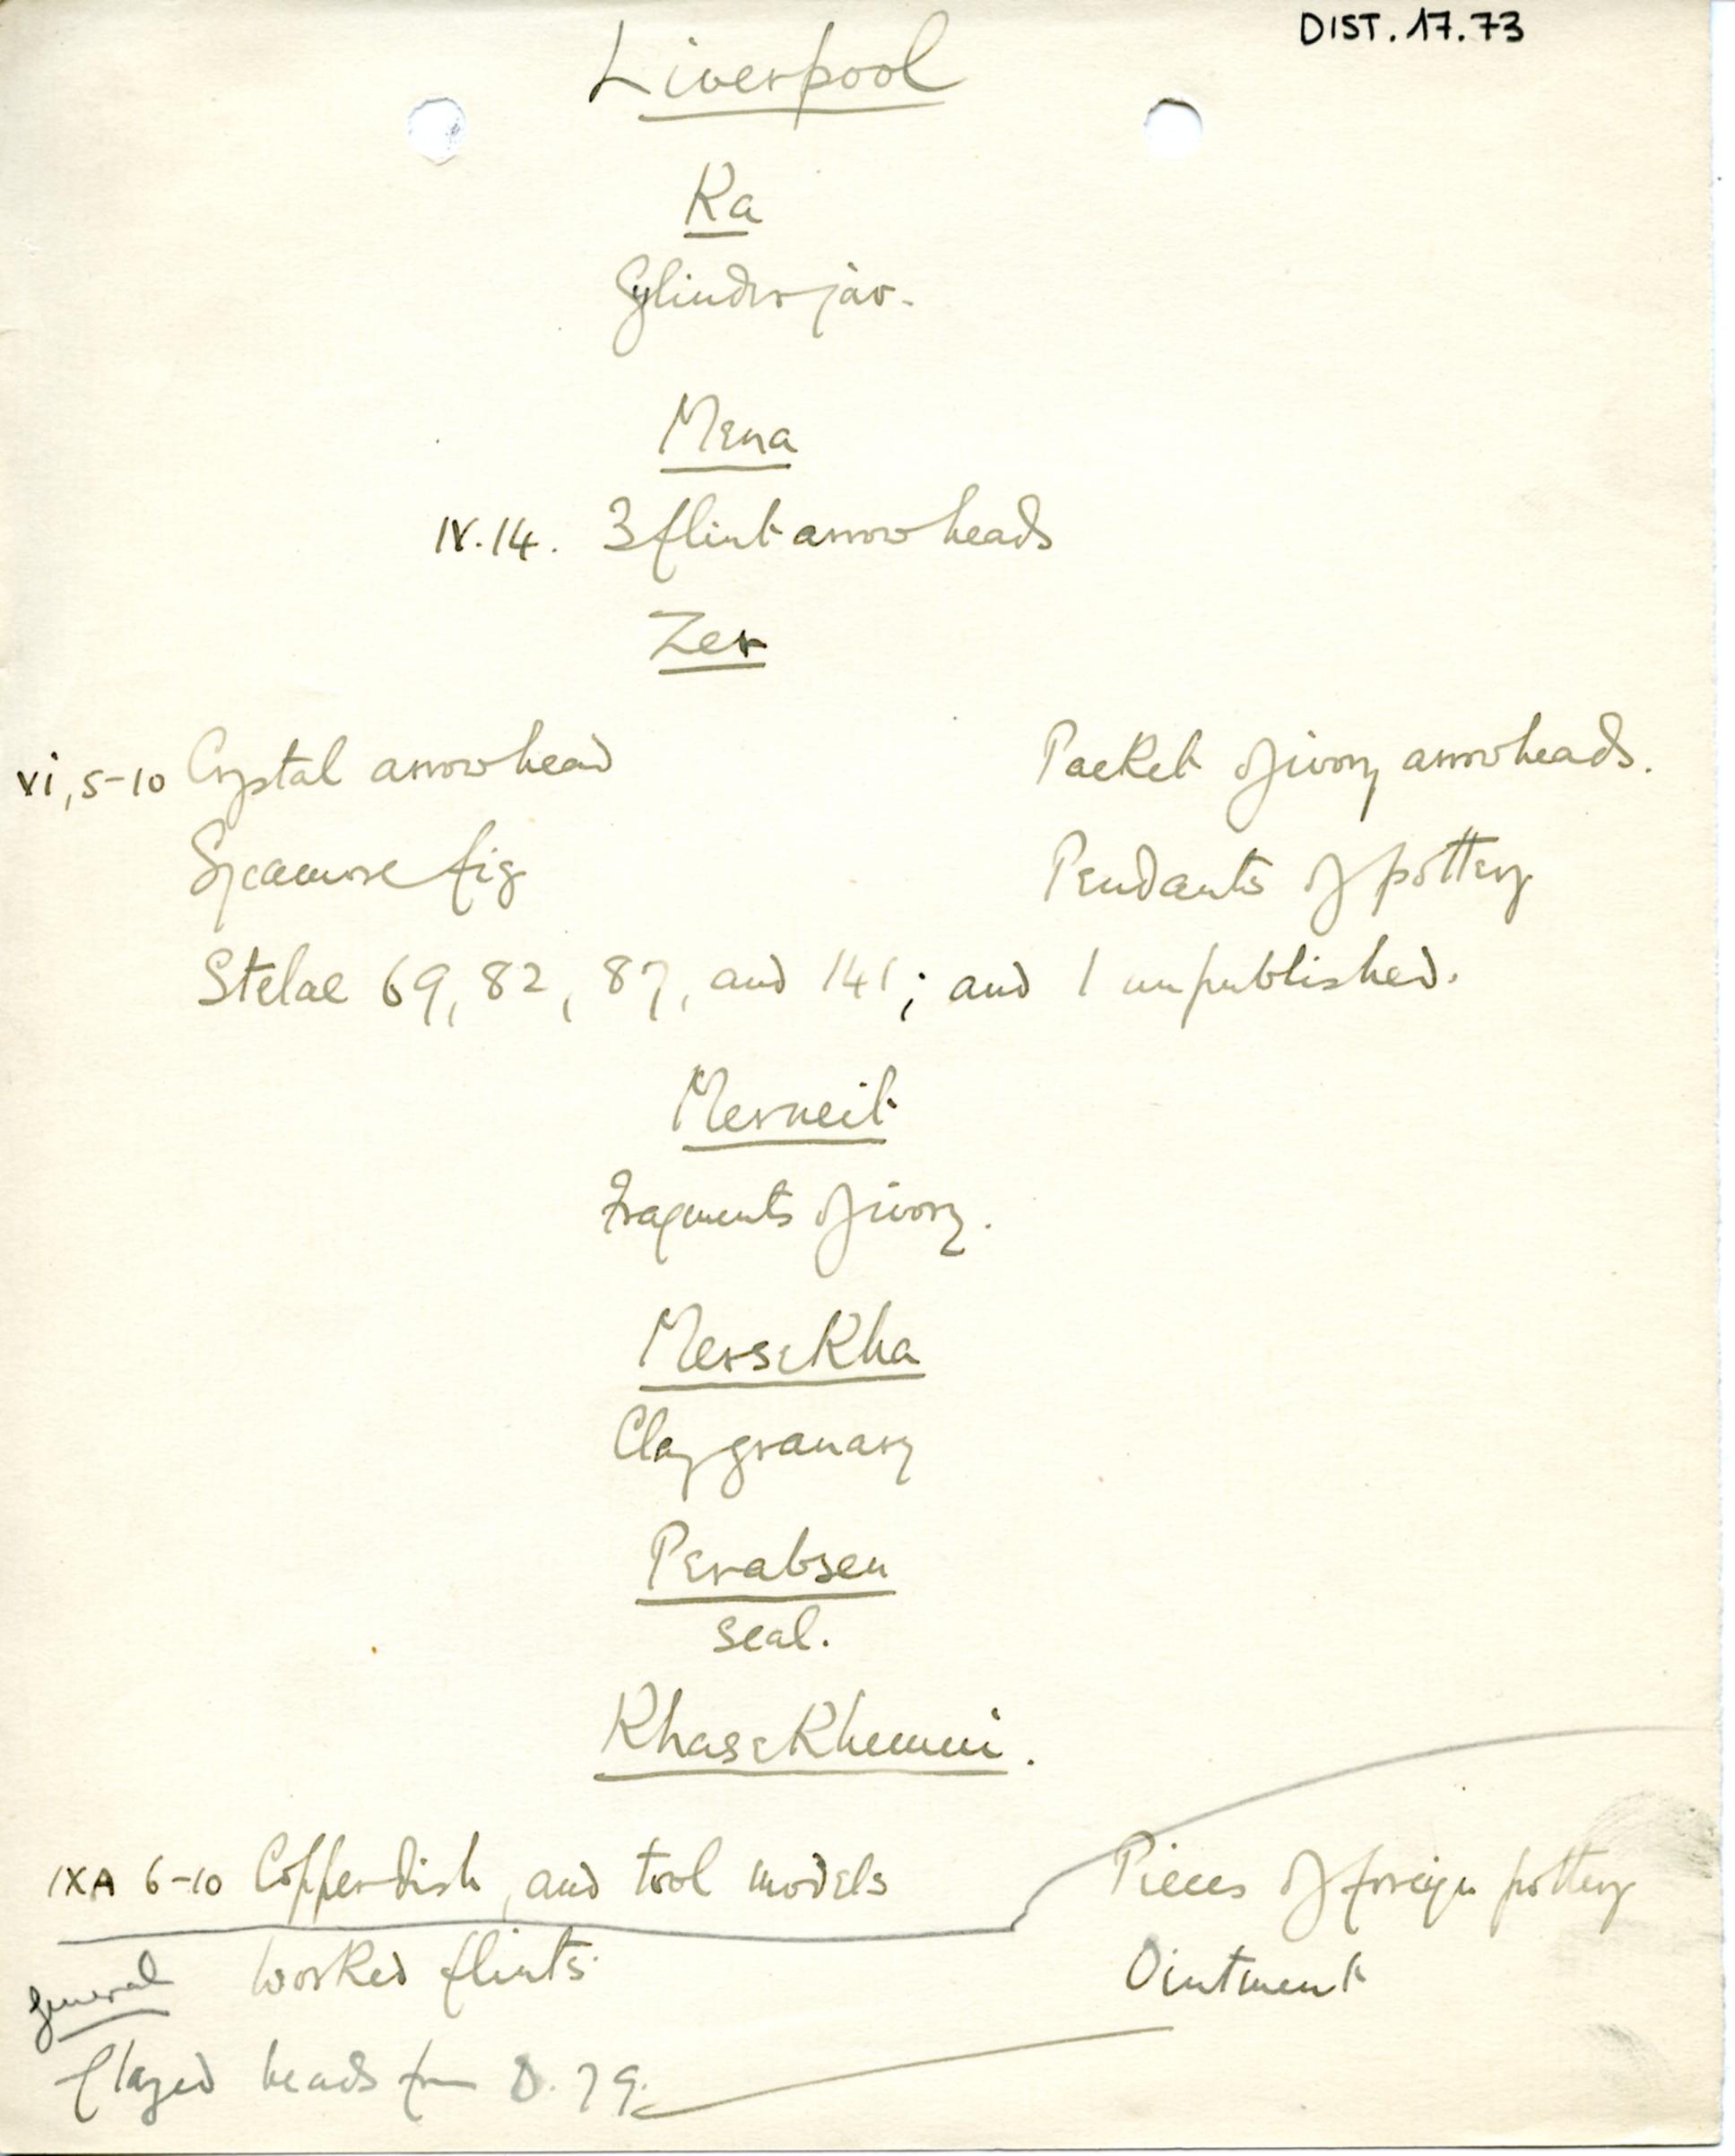 DIST. 17.73
Liverpool
Ka
Cylinder jar.
Mena
IV.14. 3 flint arrowheads
Zer
vi, 5-10 Crystal arrowhead Packet of ivory arrowheads.
Sycamore fig Pendants of pottery
Stelae 69, 82, 87, and 141; and 1 unpublished.
Merneit
Fragments of ivory.
Mersekha
Clay granary
Perabsen
seal.
Khasekhemui.
IXA 6-10 Copper dish, and tool models Pieces of foreign pottery
general Worked flints. Ointment
Glazed beads from D. 79.